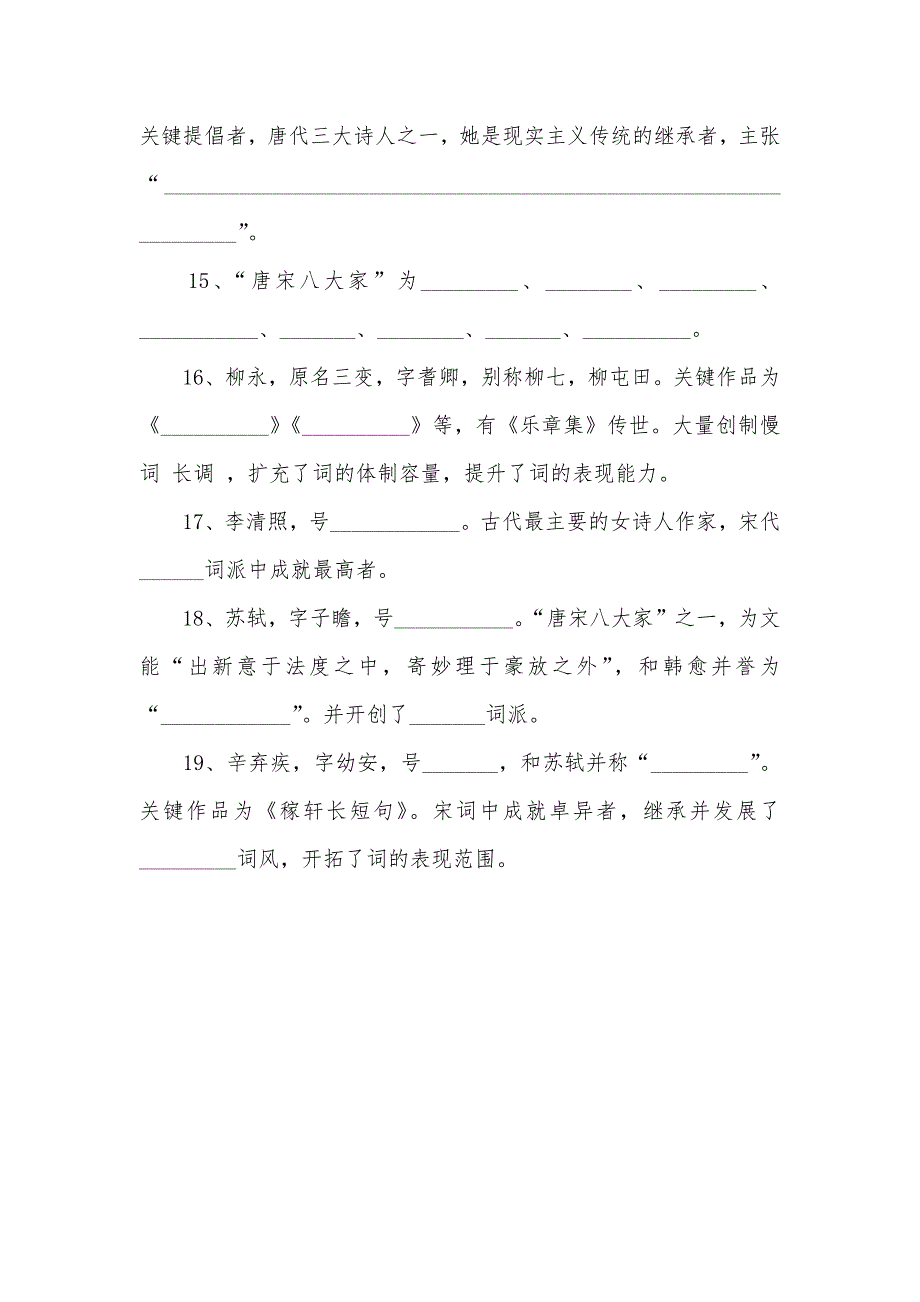 关键提倡者，唐代三大诗人之一，她是现实主义传统的继承者，主张
“_________________________________________________________
_________”。
15、“唐宋八大家”为_________、________、_________、
___________、_______、________、_______、__________。
16、柳永，原名三变，字耆卿，别称柳七，柳屯田。关键作品为
《__________》《__________》等，有《乐章集》传世。大量创制慢
词 长调 ，扩充了词的体制容量，提升了词的表现能力。
17、李清照，号____________。古代最主要的女诗人作家，宋代
______词派中成就最高者。
18、苏轼，字子瞻，号___________。“唐宋八大家”之一，为文
能“出新意于法度之中，寄妙理于豪放之外”，和韩愈并誉为
“____________”。并开创了_______词派。
19、辛弃疾，字幼安，号_______，和苏轼并称“_________”。
关键作品为《稼轩长短句》。宋词中成就卓异者，继承并发展了
_________词风，开拓了词的表现范围。